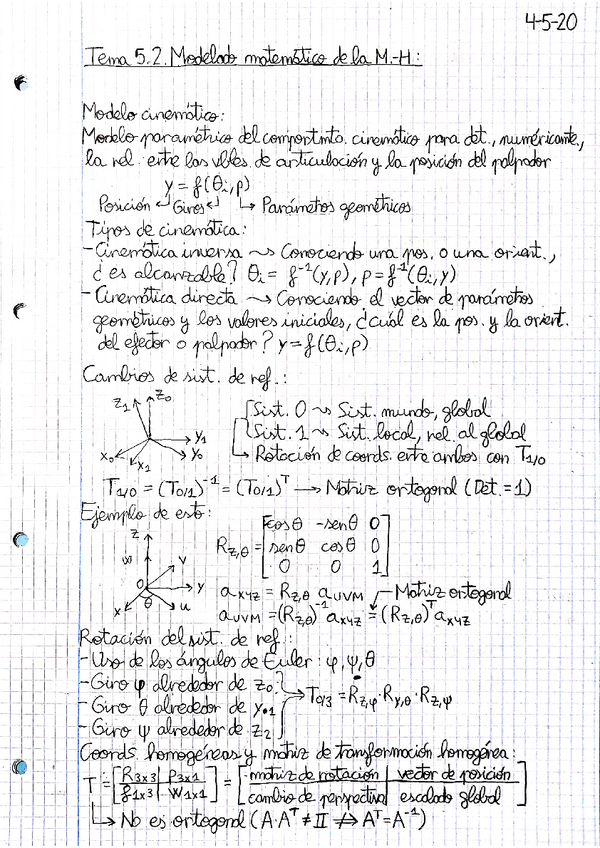 4-5-20
Tema 5.2. Modelado matemático de la M.-H.:
Modelo cinemático:
Modelo paramétrico del comportmto. cinemático para det., numéricamte.,
la rel. entre las vbles. de articulación y la posición del palpador
y = f(θi, p)
Posición ↵ Giros ↵ ↳ Parámetros geométricos
Tipos de cinemática:
- Cinemática inversa ⇝ Conociendo una pos. o una orient.,
¿es alcanzable? θi = f⁻¹(y,p), p = f⁻¹(θi,y)
- Cinemática directa ⇝ Conociendo el vector de parámetros
geométricos y los valores iniciales, ¿cuál es la pos. y la orient.
del efector o palpador? y = f(θi,p)
Cambios de sist. de ref.:
Z1 Z0 Y1 Y0 X0 X1
Sist. 0 ⇝ Sist. mundo, global
Sist. 1 ⇝ Sist. local, rel. al global
↳ Rotación de coords. entre ambos con T1/0
T1/0 = (T0/1)⁻¹ = (T0/1)ᵀ → Matriz ortogonal (Det. = 1)
Ejemplo de esto:
Z W V O Y X θ U
Rz,θ = [cosθ -senθ 0
senθ cosθ 0
0 0 1]
aXYZ = Rz,θ aUVM Matriz ortogonal
aUVM = (Rz,θ)⁻¹ aXYZ = (Rz,θ)ᵀ aXYZ
Rotación del sist. de ref.:
- Uso de los ángulos de Euler: φ, ψ, θ
- Giro φ alrededor de z0
- Giro θ alrededor de y0.1 → T0/3 = Rz,φ · Ry,θ · Rz,ψ
- Giro ψ alrededor de z2
Coords. homogéneas y matriz de transformación homogénea:
T = [R3x3 | P3x1] = [matriz de rotación | vector de posición]
[f1x3 | W1x1] [cambio de perspectiva | escalado global]
↳ No es ortogonal (A·Aᵀ ≠ II ⇏ Aᵀ = A⁻¹)